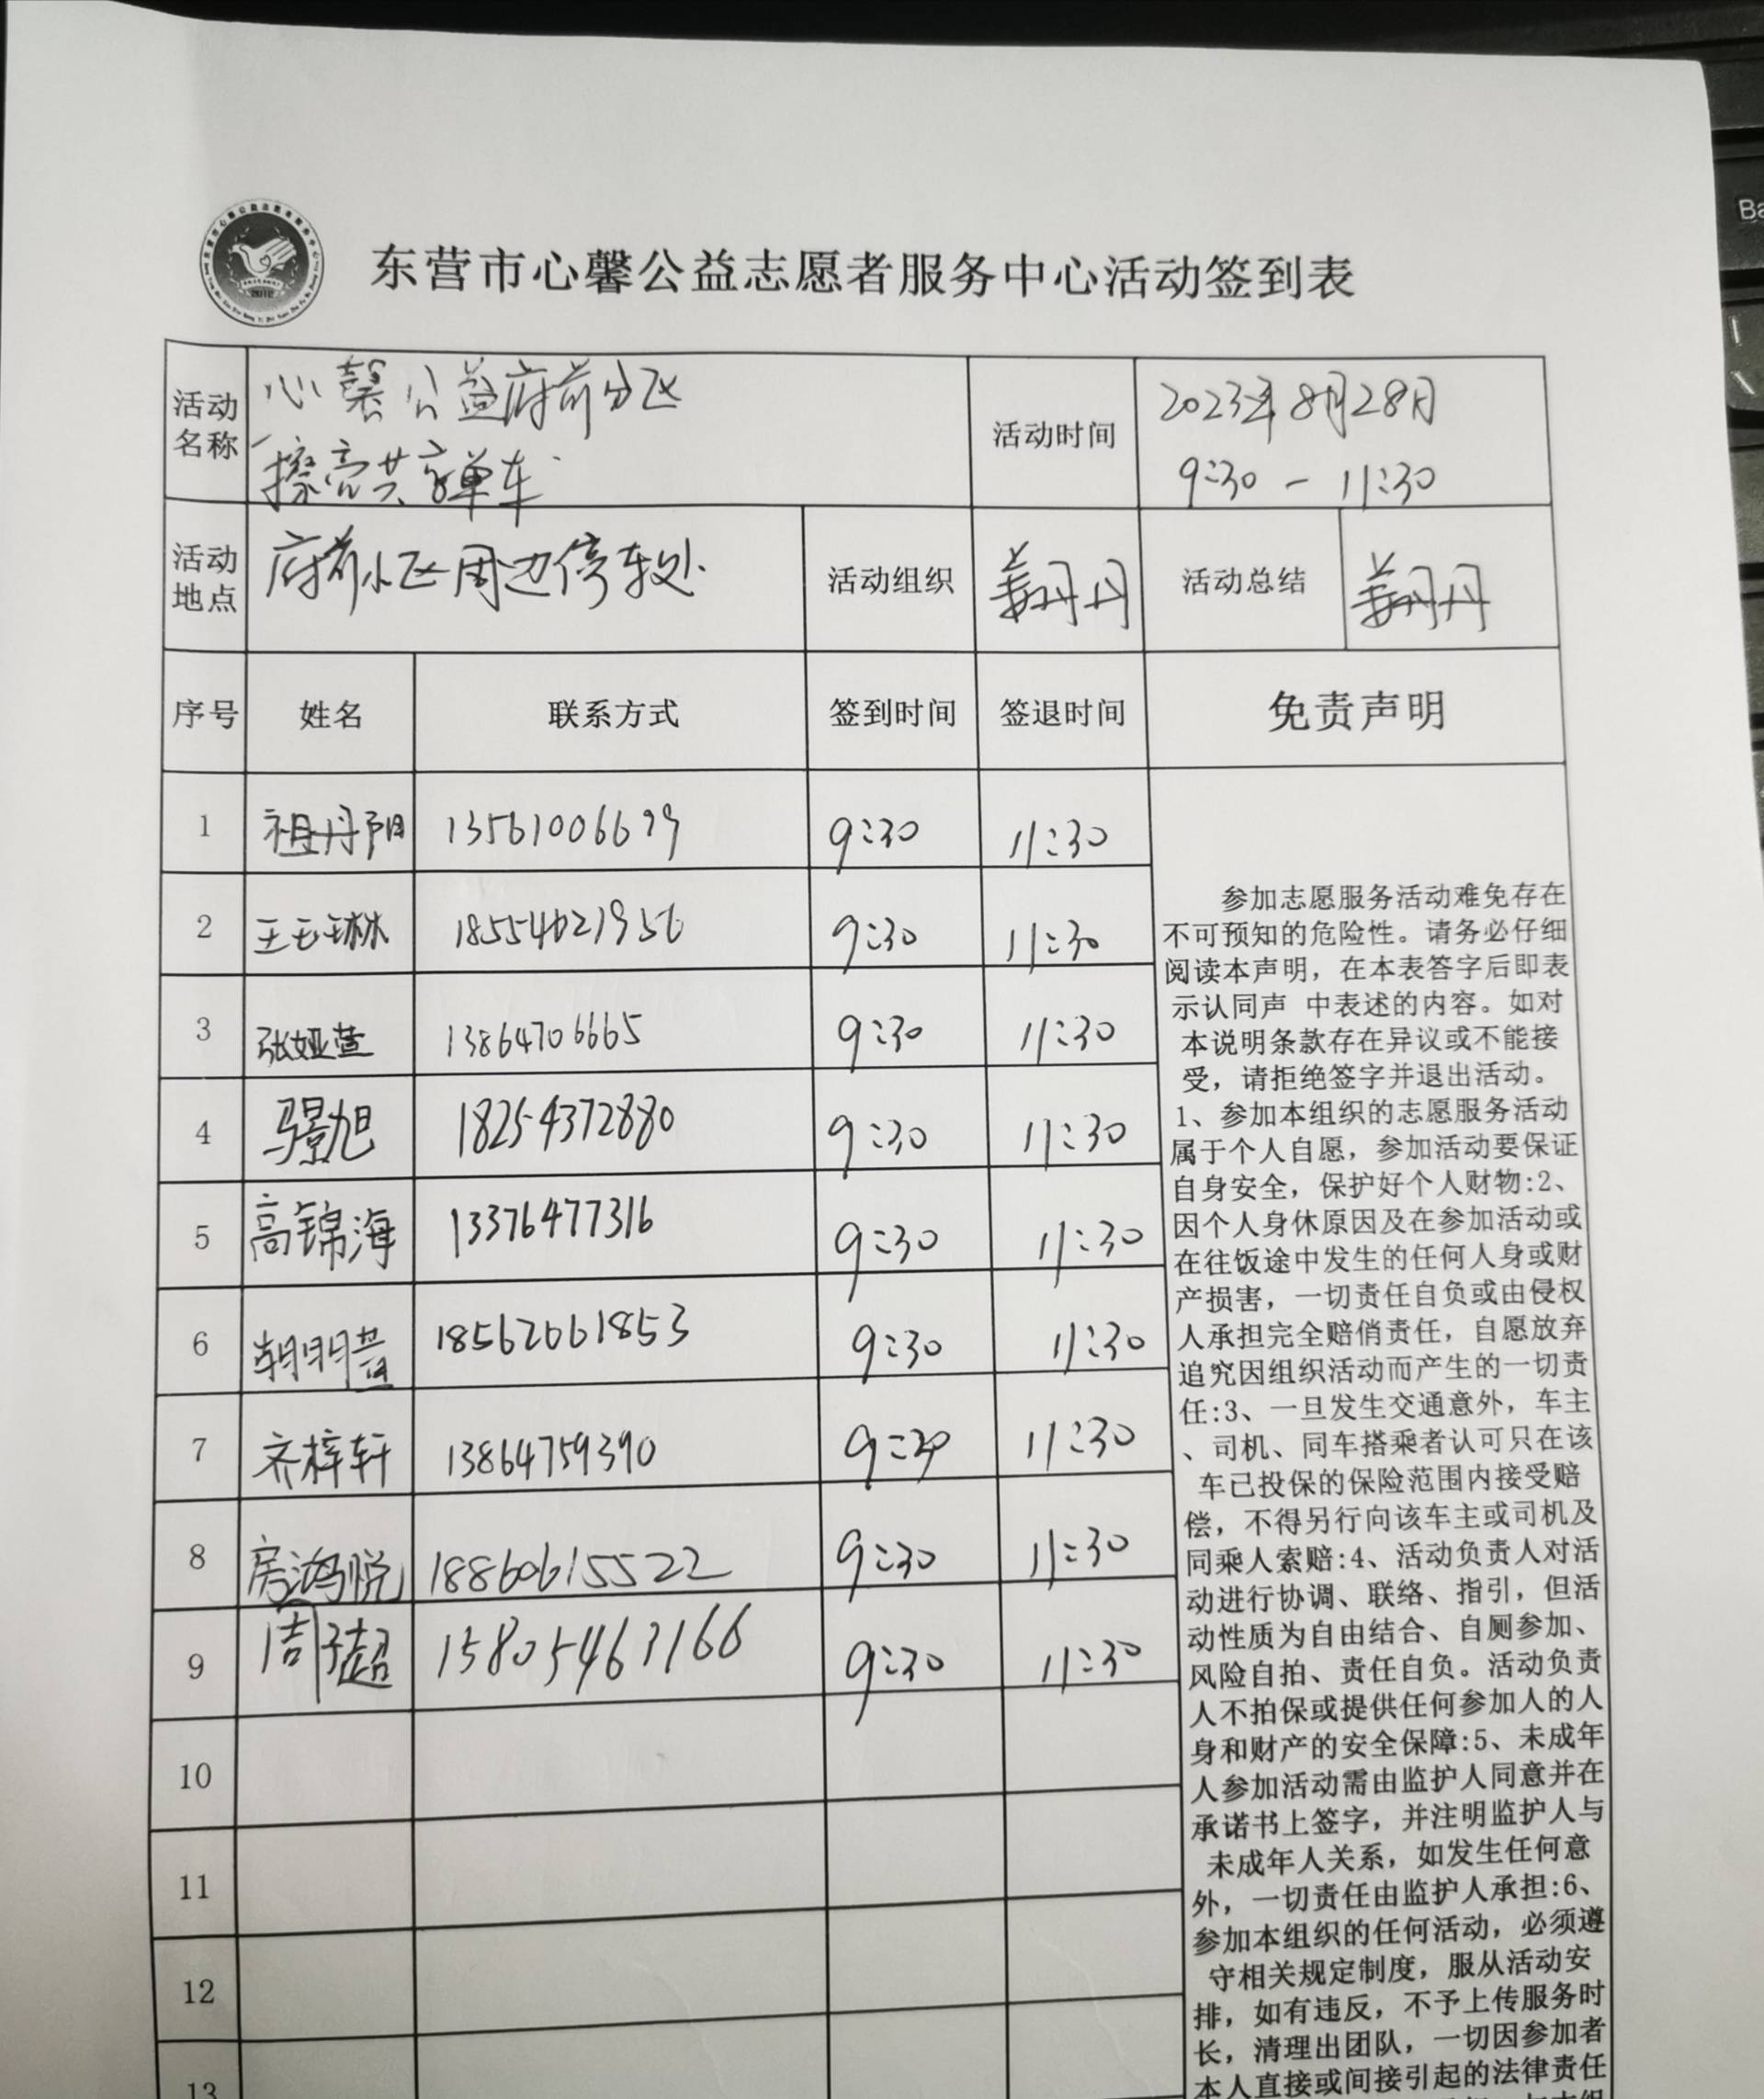 东营市心馨公益志愿者服务中心活动签到表
活动名称 心馨公益府前分区 擦亮共享单车 活动时间 2023年8月28日 9:30 - 11:30
活动地点 府前小区周边停车处 活动组织 姜丹丹 活动总结 姜丹丹
序号 姓名 联系方式 签到时间 签退时间 免责声明
1 祖丹阳 13561006699 9:30 11:30
2 王玉琳 18554621956 9:30 11:30
3 张娅萱 13864706665 9:30 11:30
4 马景旭 18254372880 9:30 11:30
5 高锦海 13376477316 9:30 11:30
6 18562061853 9:30 11:30
7 齐梓轩 13864759390 9:30 11:30
8 房鸿悦 18860615522 9:30 11:30
9 周子超 15805463166 9:30 11:30
10
11
12
13
参加志愿服务活动难免存在
不可预知的危险性。请务必仔细
阅读本声明，在本表答字后即表
示认同声 中表述的内容。如对
本说明条款存在异议或不能接
受，请拒绝签字并退出活动。
1、参加本组织的志愿服务活动
属于个人自愿，参加活动要保证
自身安全，保护好个人财物:2、
因个人身休原因及在参加活动或
在往饭途中发生的任何人身或财
产损害，一切责任自负或由侵权
人承担完全赔俏责任，自愿放弃
追究因组织活动而产生的一切责
任:3、一旦发生交通意外，车主
、司机、同车搭乘者认可只在该
车已投保的保险范围内接受赔
偿，不得另行向该车主或司机及
同乘人索赔:4、活动负责人对活
动进行协调、联络、指引，但活
动性质为自由结合、自厕参加、
风险自拍、责任自负。活动负责
人不拍保或提供任何参加人的人
身和财产的安全保障:5、未成年
人参加活动需由监护人同意并在
承诺书上签字，并注明监护人与
未成年人关系，如发生任何意
外，一切责任由监护人承担:6、
参加本组织的任何活动，必须遵
守相关规定制度，服从活动安
排，如有违反，不予上传服务时
长，清理出团队，一切因参加者
本人直接或间接引起的法律责任